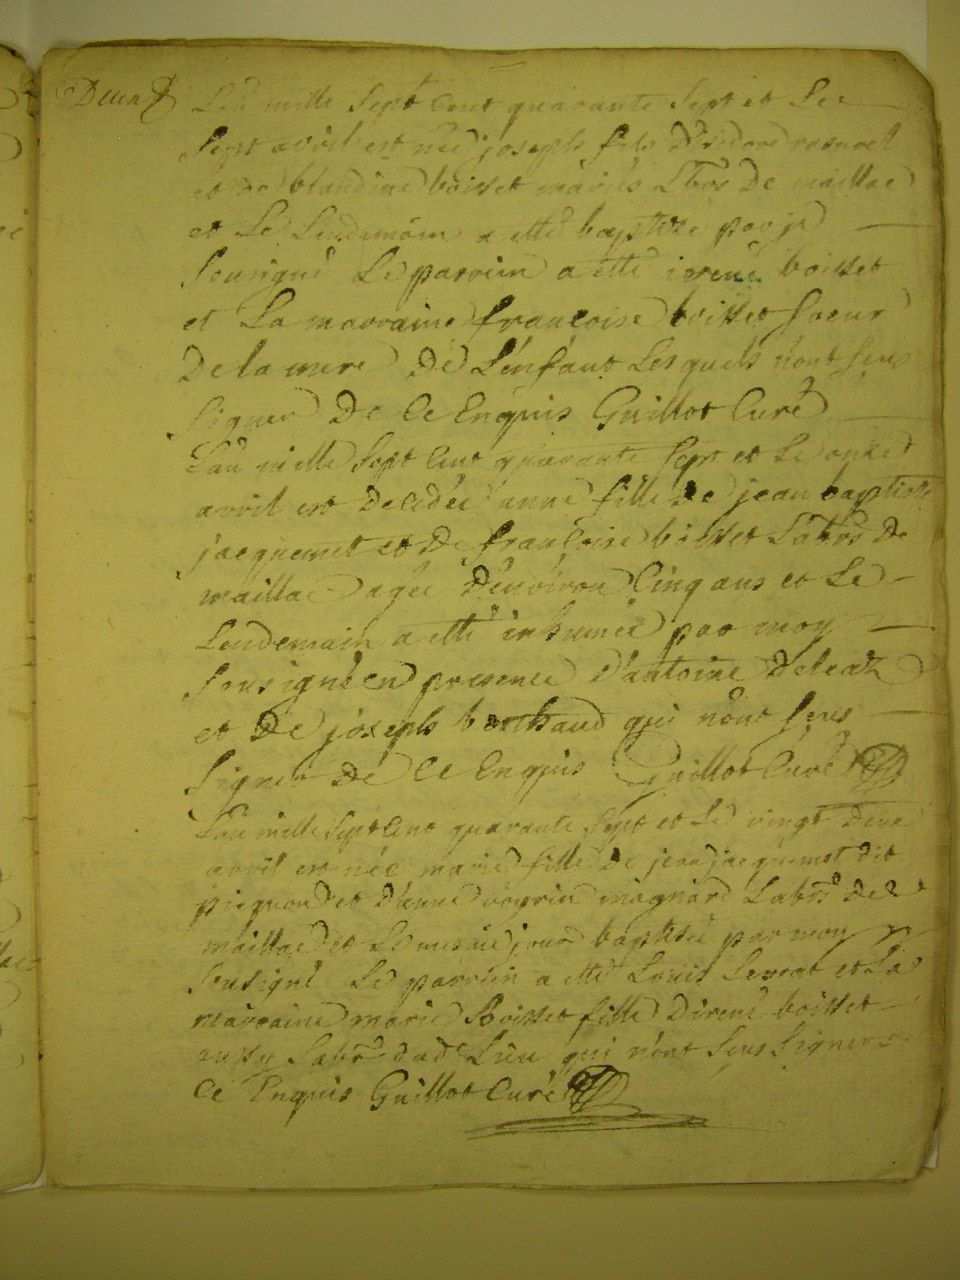 L'an mille Sept Cent quarante Sept et Le
Sept avril est née joseph fils D'isidore
et de blandine boisset mariés Lbrs De maillac
et Le Lendemain a etté baptisé par je
Sousigné Le parrein a etté irené boisset
et La marraine françoise boisset Soeur
De la mere De L'enfant Lesquels n'ont Seus
Signer De Ce Enquis Guillot Curé
L'an mille Sept Cent quarante Sept et Le onze
avril est Decedée anne fille De jean baptiste
jacquemet et De françoise boisset Labrs De
maillac agée D'environ Cinq ans et Le
Lendemain a etté inhumée par moy
Sousigné en presence D'antoine
et De joseph berthaud qui n'ont Seus
Signer De Ce Enquis Guillot Curé
L'an mille Sept Cent quarante Sept et Le vingt Deux
avril est née marie fille De jean jacquemet dit
et D'anne magnard Labrs de
maillac et Le mesme jour baptisée par moy
Sousigné Le parrein a etté Louis et La
marraine marie Boisset fille D'irené boisset
aussy Labr dud Lieu qui n'ont Seus Signer
Ce Enquis Guillot Curé